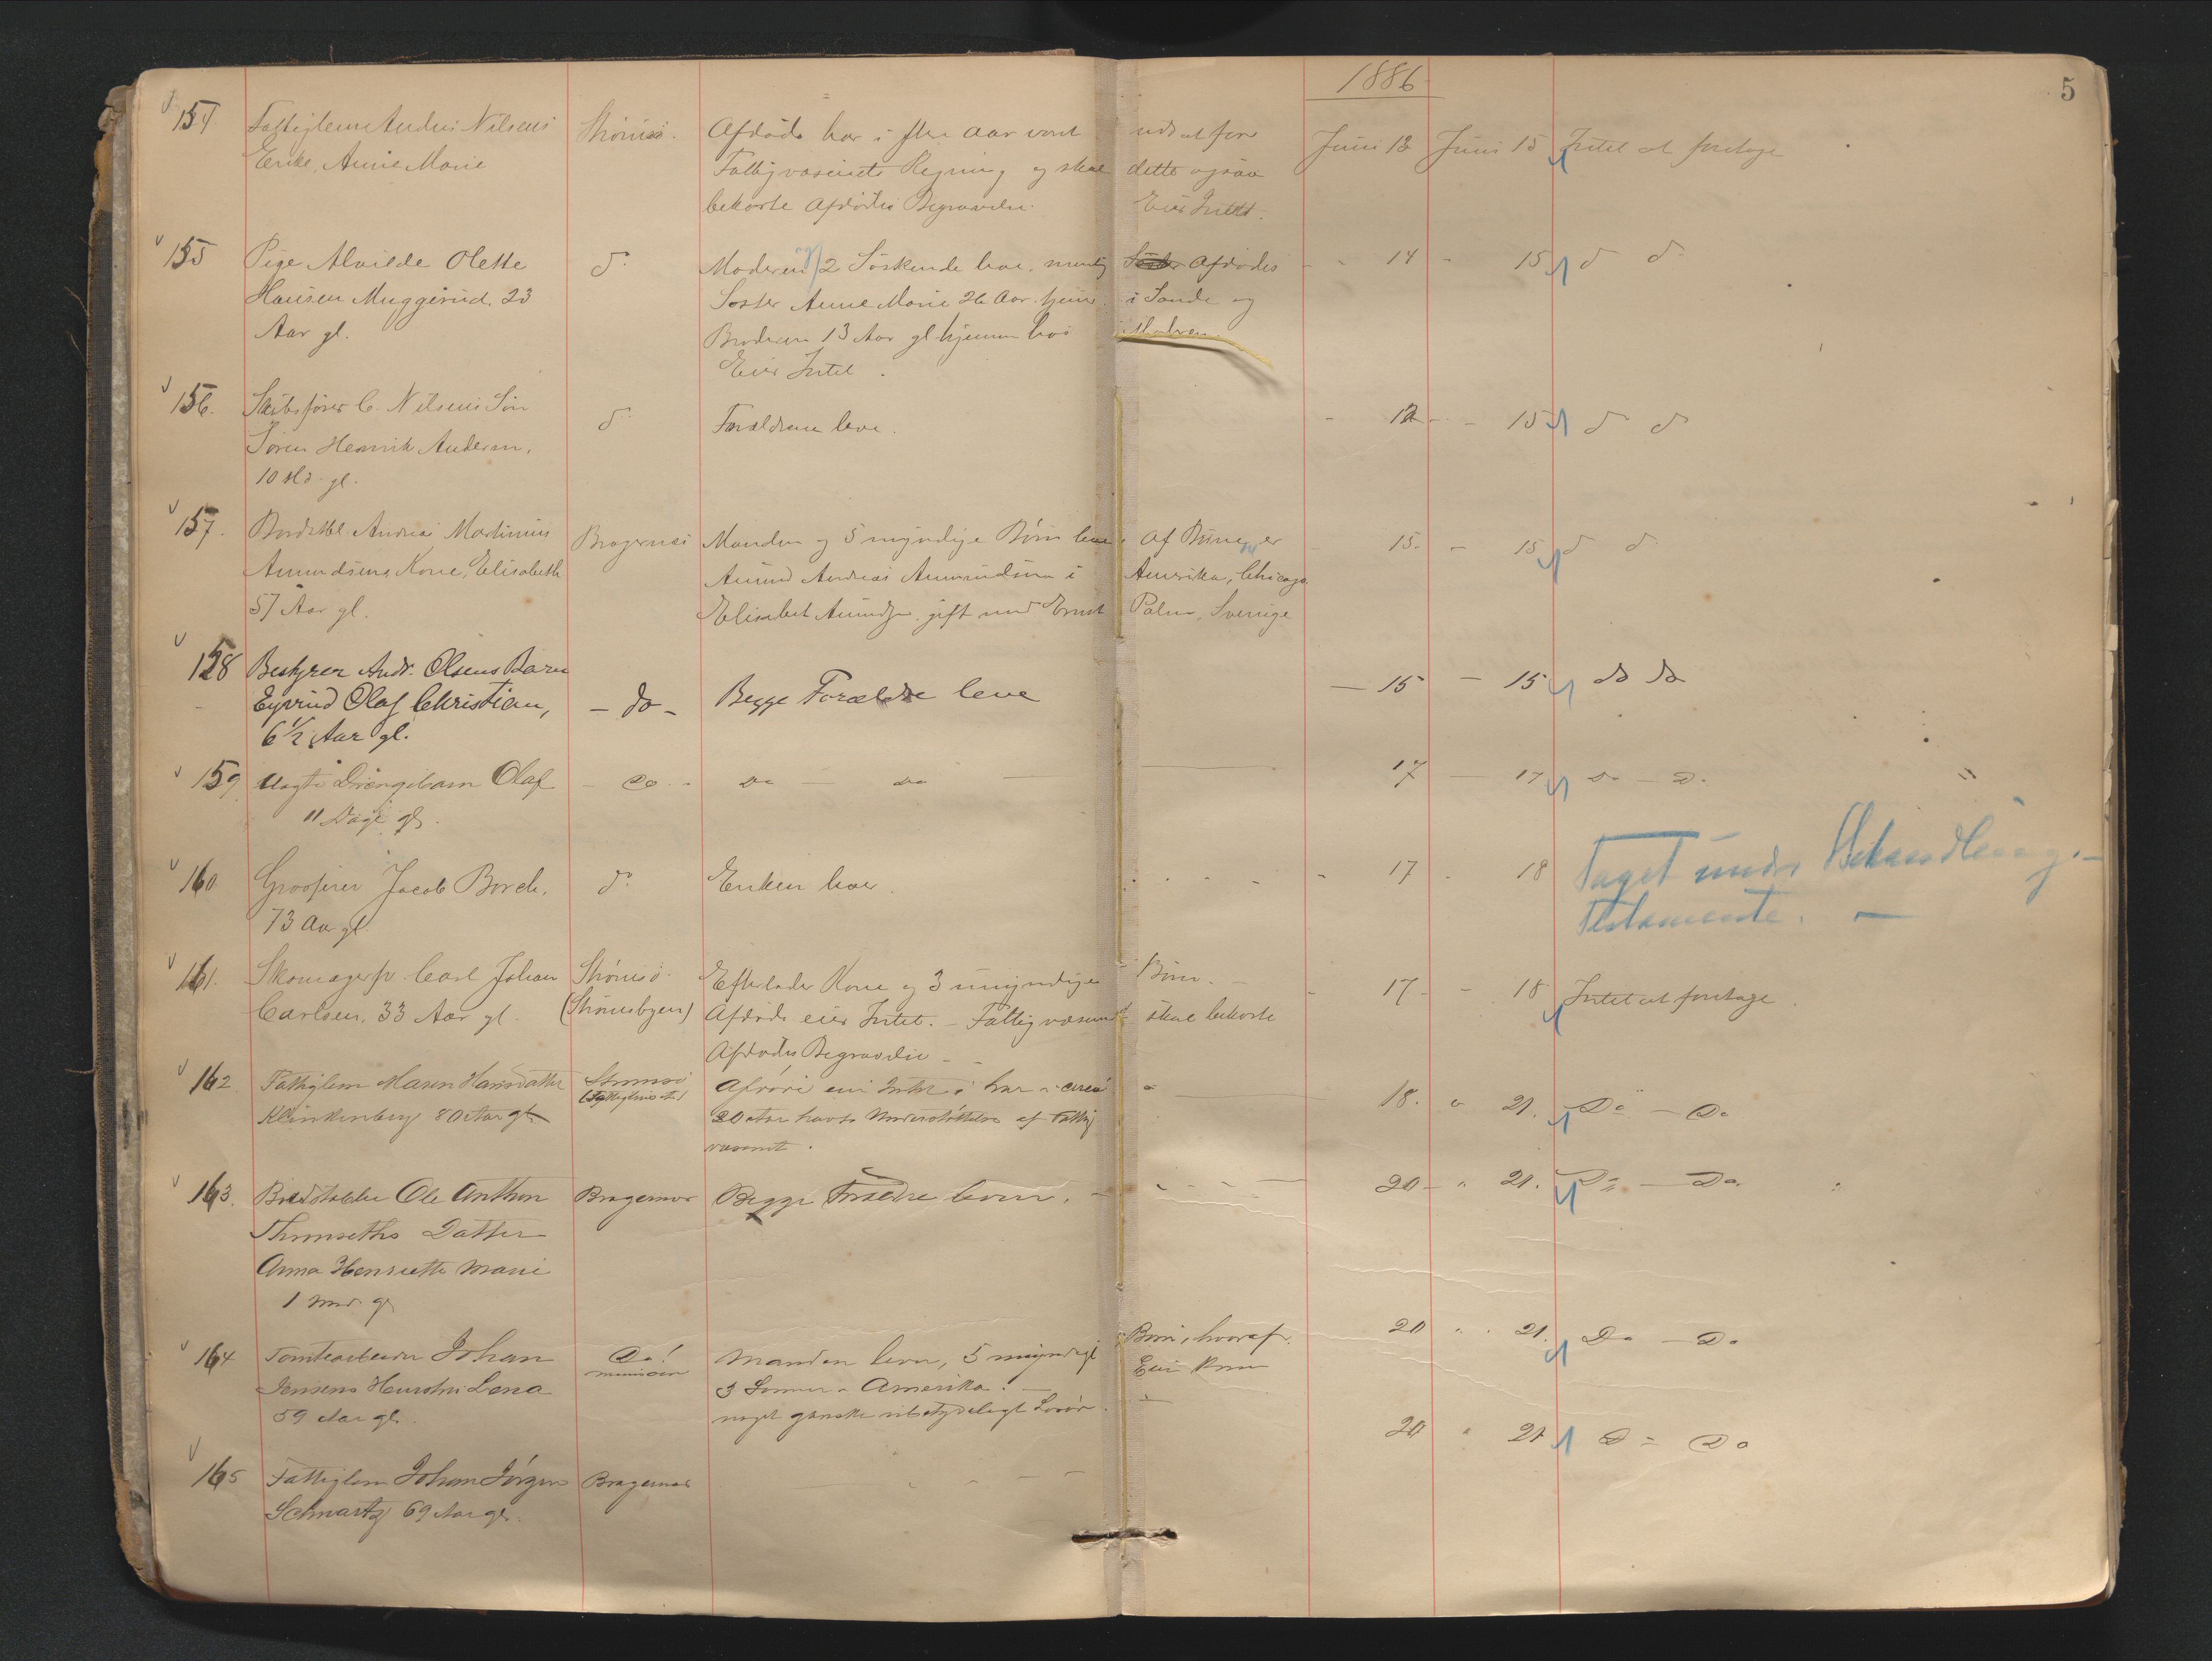 1886
5
154 Fattiglem Andres Nilsens Strømsø. Afdøde har i flere Aar været udsat for Juni 12 Juni 15 Intet at foretage
Enke, Anne Marie Fattigvæsenets Regning og skal dette ogsaa
bekoste Afdødes Begravelse. Eier Intet.
155 Pige Alvilde Olette do Moderen og 2 Søskende leve, nemlig Afdødes - 14 - 15 do do
Hansen Muggerud. 23 Søster Anne Marie 26 Aar. hjemme i Sande og
Aar gl. Broderen 13 Aar gl hjemme hos Moderen
Eier Intet.
156. Skibsfører C. Nilsens Søn do Forældrene leve. - 12 - - 15 do do
Søren Henrik Andersen,
10 Md. gl.
157. Andreas Martinius Bragernæs Manden og 5 myndige Børn leve. Af Børnene er - 15. - 15 do do
Amundsens Kone, Elisabeth Amund Andreas Amundsen i Amerika, Chicago.
57 Aar gl. Elisabet Amundsen gift med Ernst Palm, Sverige
158 Bestyrer Andr. Olsens Barn
Eyvind Olaf Christian, - do - Begge Forældre leve - 15 - 15 do do
6 1/2 Aar gl.
159 Uægte Drengebarn Olaf - do - do - do 17 - 17 do - do
11 Dage gl.
160 Grosserer Jacob Borch. do Enken lever. - 17 - 18 Taget under Behandling. -
73 Aar gl. Testamente. -
161. Skomagersv. Carl Johan Strømsø. Efterlader Kone og 3 umyndige Børn. - 17 - - 18 Intet at foretage.
Carlsen. 33 Aar gl. (Strømsbyen) Afdøde eier Intet. - Fattigvæsenet skal bekoste
Afdødes Begravelse -
162. Fattiglem Maren Hansdatter Strømsø Afdøde eier Intet i circa 18. " 21. Do - Do
Klinkenberg 80 Aar gl 20 Aar havt Understøttelse af Fattig
væsenet.
163. Ole Anthon Bragernes Begge Forældre lever. - 20 - " 21. Do - Do.
Thrmseths Datter
Anna Henriette Marie
1 Md. gl
164 Tomtearbeider Johan Do! Manden lever, 5 myndige Børn, hvoraf 20 " " 21. Do - Do
Jensens Hustru Lena 3 Sønner i Amerika. -
59 Aar gl. noget ganske ubetydeligt Løsøre.
165 Fattiglem Johan Jörgen Bragernes 20 " 21 Do = Do
Schwartz 69 Aar gl.